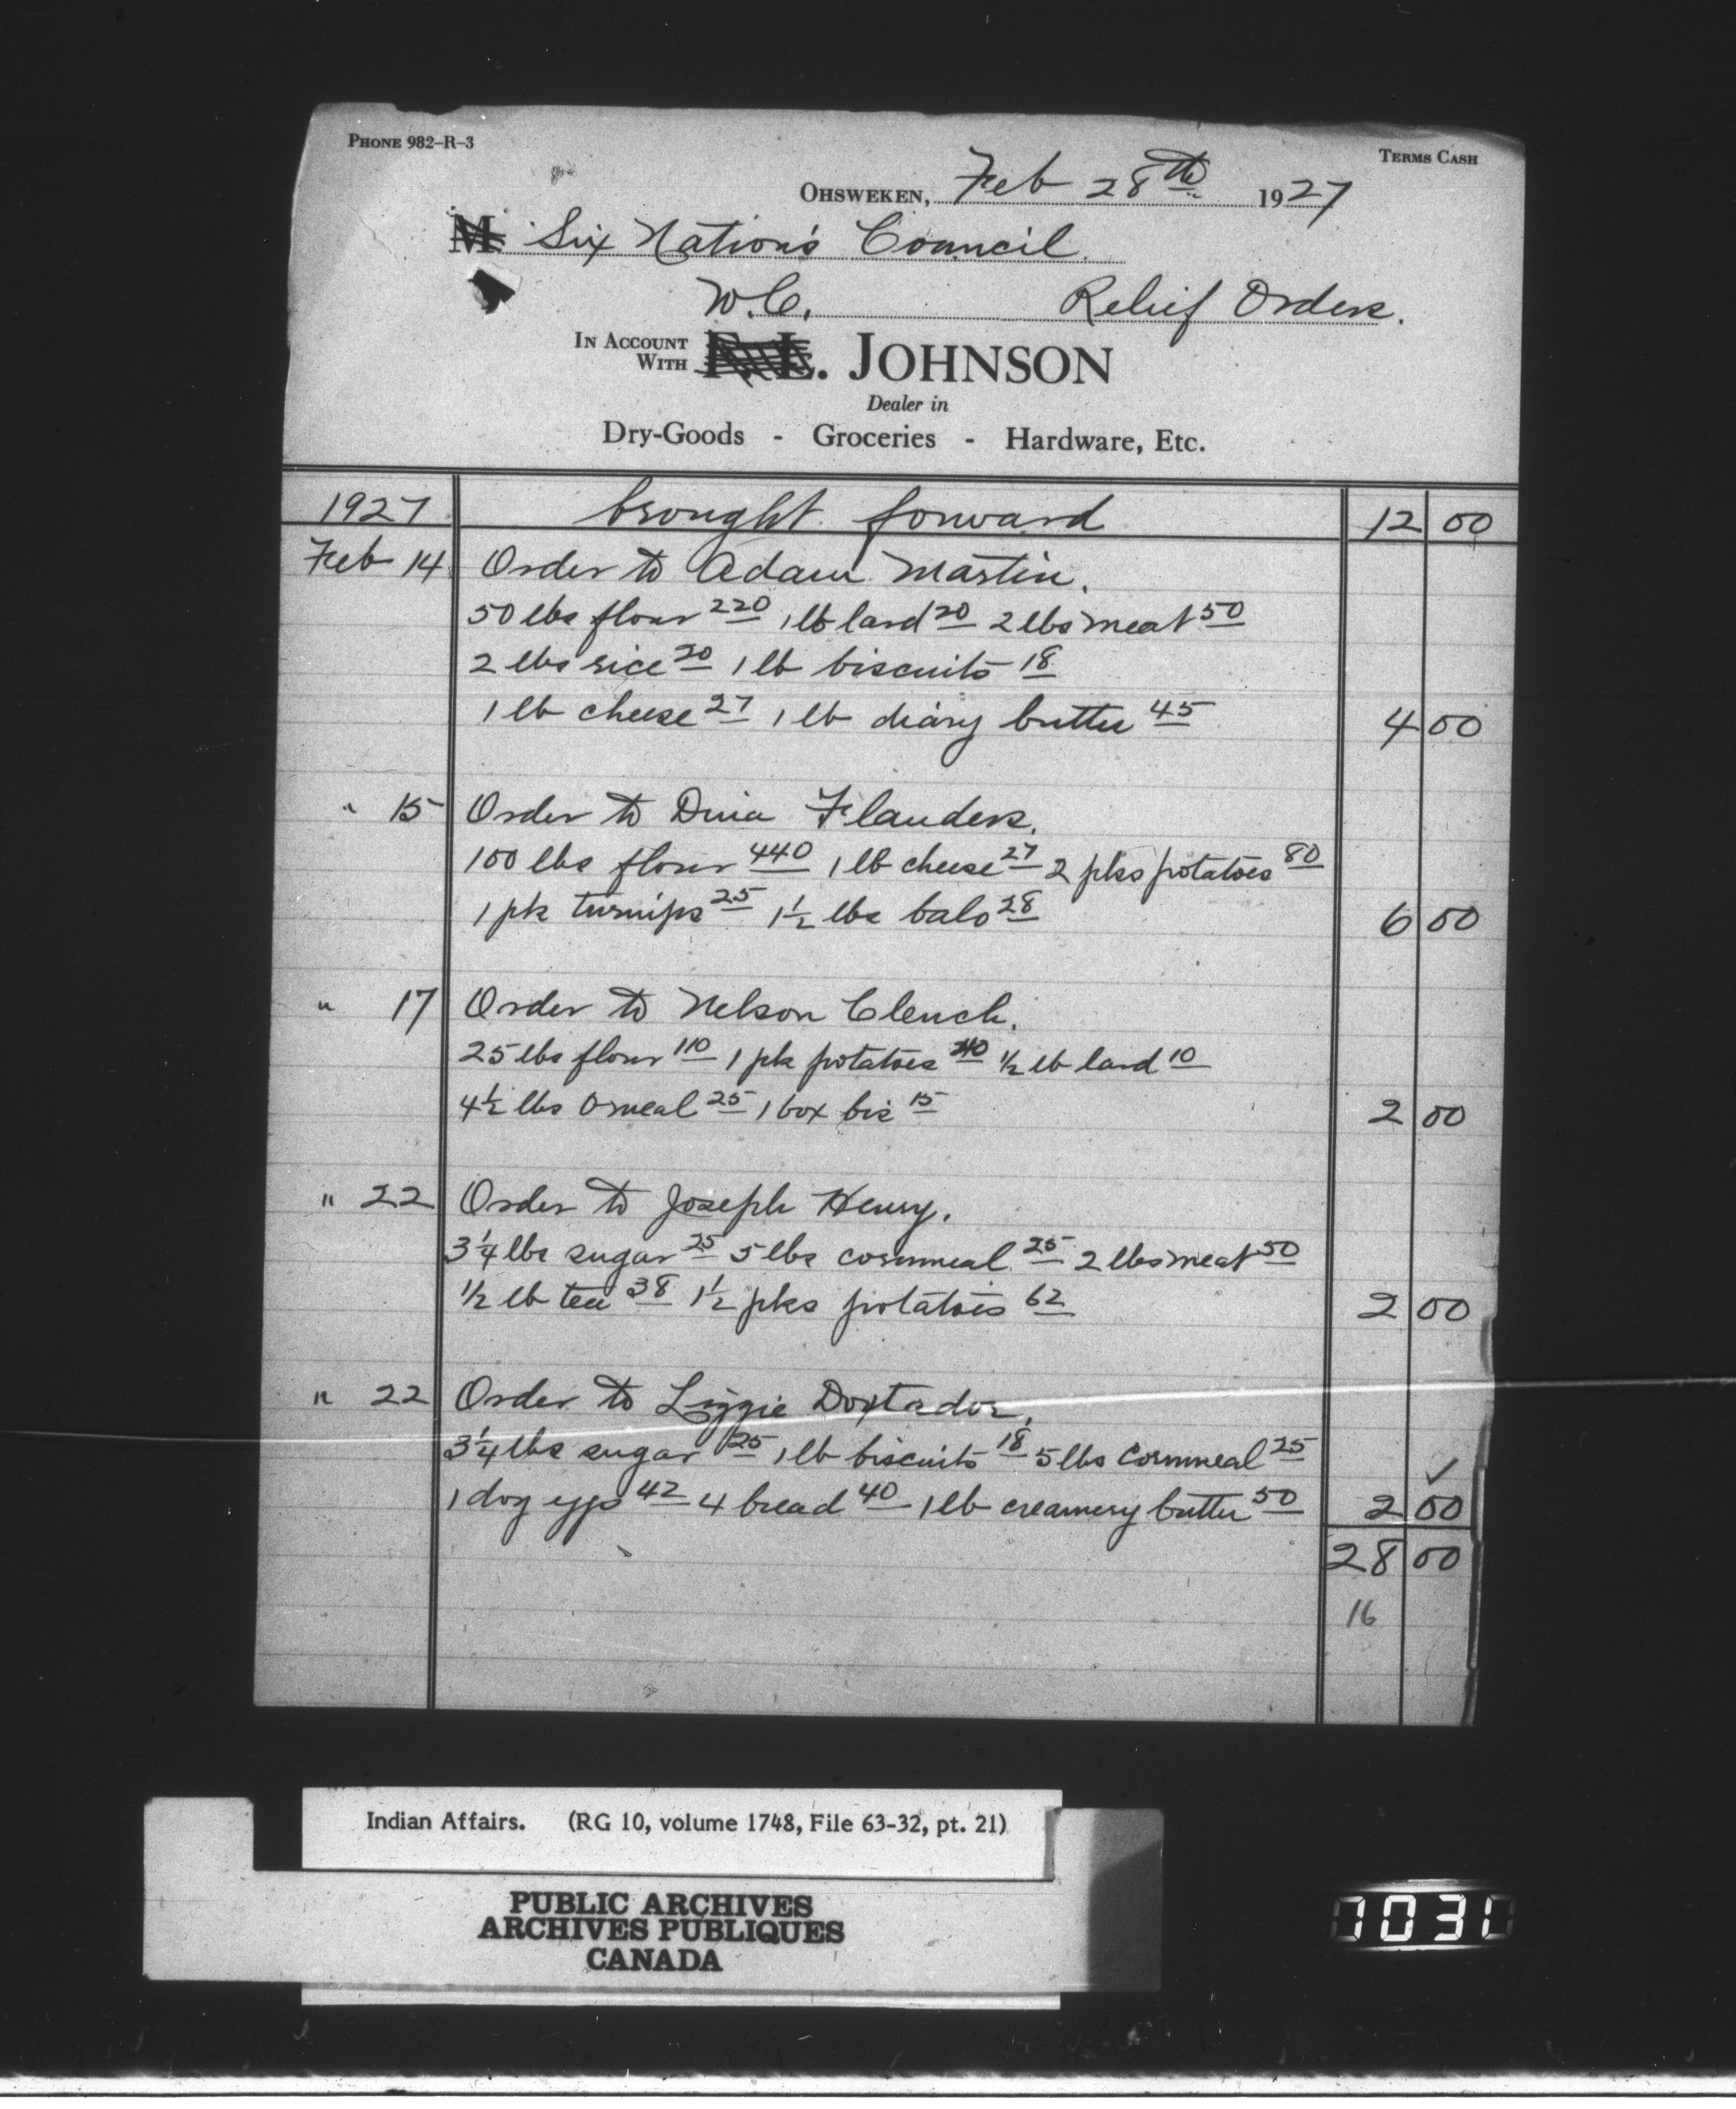 PHONE 982-R-3
TERMS CASH
OHSWEKEN, Feb 28th 1927
M Six Nation's Council.
W.C. Relief Orders.
IN ACCOUNT WITH F. L. JOHNSON
Dealer in
Dry-Goods - Groceries - Hardware, Etc.
1927 brought forward 12 00
Feb 14 Order to Adam Martin.
50 lbs flour 220 1 lb lard 20 2 lbs meat 50
2 lbs rice 20 1 lb biscuits 18
1 lb cheese 27 1 lb diary butter 45 4 00
" 15 Order to Dina Flanders.
100 lbs flour 440 1 lb cheese 27 2 pks potatoes 80
1 pk turnips 25 1½ lbs balo 28 6 00
" 17 Order to Nelson Clench.
25 lbs flour 110 1 pk potatoes 40 ½ lb lard 10
4½ lbs Omeal 25 1 box bis 15 2 00
" 22 Order to Joseph Henry.
3¼ lbs sugar 25 5 lbs cornmeal 25 2 lbs meat 50
½ lb tea 38 1½ pks potatoes 62 2 00
" 22 Order to Lizzie Doxtador.
3¼ lbs sugar 25 1 lb biscuits 18 5 lbs Cornmeal 25 ✓
1 doz eggs 42 4 bread 40 1 lb creamery butter 50 2 00
28 00
16
Indian Affairs. (RG 10, volume 1748, File 63-32, pt. 21)
PUBLIC ARCHIVES
ARCHIVES PUBLIQUES
CANADA
1031